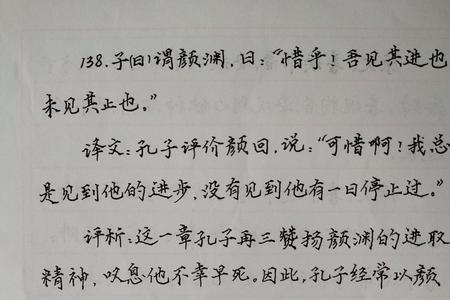 138.子(曰)谓颜渊,曰:“惜乎!吾见其进也
未见其止也。”
译文:孔子评价颜回,说:“可惜啊!我总
是见到他的进步,没有见到他有一日停止过。”
评析:这一章孔子再三赞扬颜渊的进取
精神,叹息他不幸早死。因此,孔子经常以颜